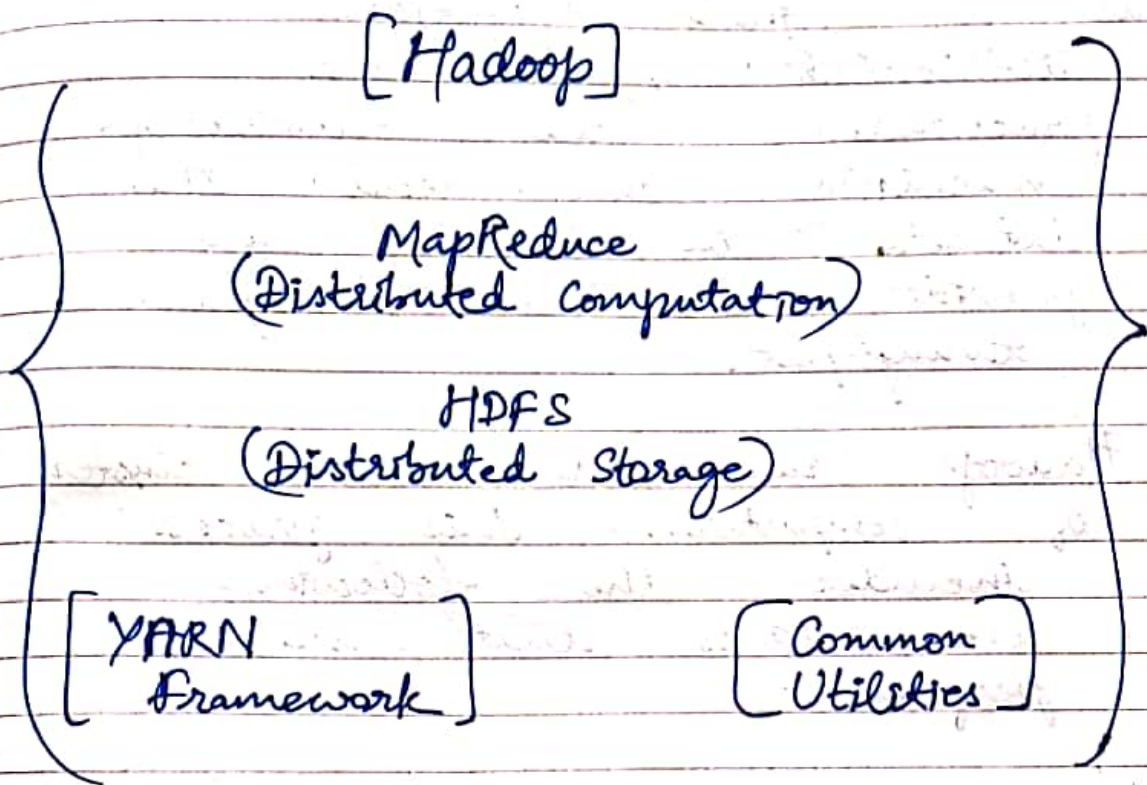 [Hadoop]
MapReduce
(Distributed Computation)
HDFS
(Distributed Storage)
[YARN
Framework]
[Common
Utilities]